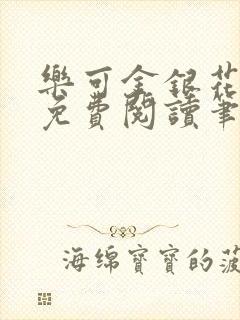 樂可金銀花
免費閱讀筆
海绵寶寶的菠